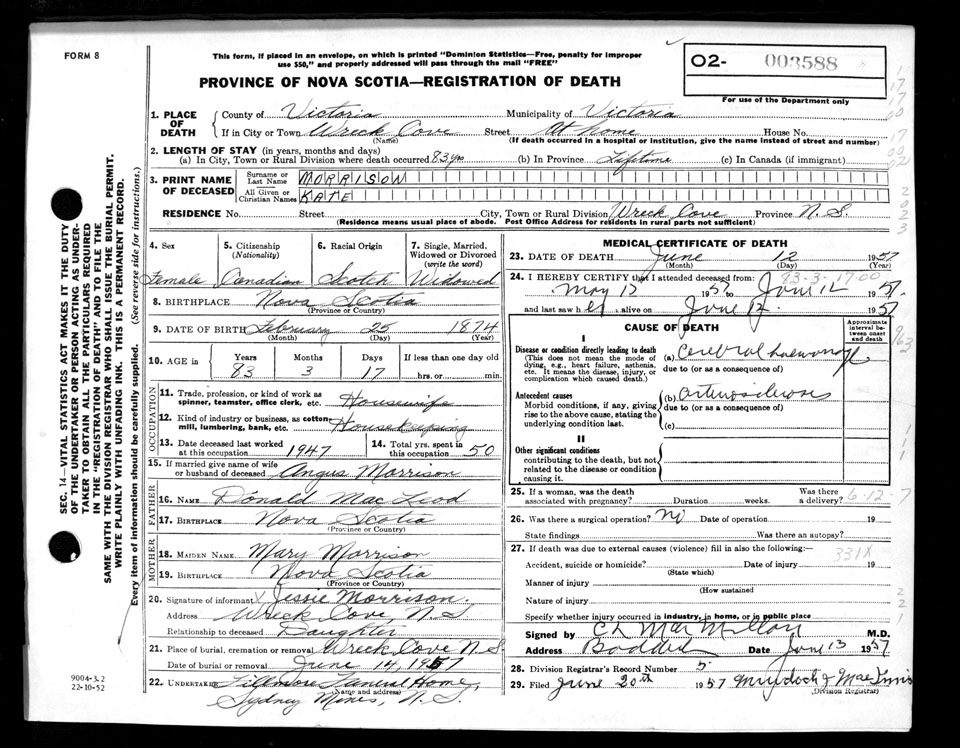 FORM 8
This form, if placed in an envelope, on which is printed "Dominion Statistics—Free, penalty for improper
use $50," and properly addressed will pass through the mail "FREE"
PROVINCE OF NOVA SCOTIA—REGISTRATION OF DEATH
O2- 003588
For use of the Department only
1. PLACE OF DEATH
County of Victoria Municipality of Victoria
If in City or Town Wreck Cove Street At home House No.
(Name) (If death occurred in a hospital or institution, give the name instead of street and number)
2. LENGTH OF STAY (in years, months and days)
(a) In City, Town or Rural Division where death occurred 83 yrs (b) In Province Lifetime (c) In Canada (if immigrant)
3. PRINT NAME OF DECEASED
Surname or Last Name MORRISON
All Given or Christian Names KATE
RESIDENCE No. Street City, Town or Rural Division Wreck Cove Province N.S.
(Residence means usual place of abode. Post Office Address for residents in rural parts not sufficient)
SEC. 14—VITAL STATISTICS ACT MAKES IT THE DUTY
OF THE UNDERTAKER OR PERSON ACTING AS UNDER-
TAKER TO OBTAIN ALL THE PARTICULARS REQUIRED
IN THE "REGISTRATION OF DEATH" AND TO FILE THE
SAME WITH THE DIVISION REGISTRAR WHO SHALL ISSUE THE BURIAL PERMIT.
WRITE PLAINLY WITH UNFADING INK. THIS IS A PERMANENT RECORD.
Every item of information should be carefully supplied. (See reverse side for instructions.)
4. Sex 5. Citizenship (Nationality) 6. Racial Origin 7. Single, Married, Widowed or Divorced (write the word)
Female Canadian Scotch Widowed
8. BIRTHPLACE Nova Scotia
(Province or Country)
9. DATE OF BIRTH February 25 1874
(Month) (Day) (Year)
10. AGE in Years Months Days If less than one day old
83 3 17 hrs. or min.
OCCUPATION
11. Trade, profession, or kind of work as
spinner, teamster, office clerk, etc. Housewife
12. Kind of industry or business, as cotton-
mill, lumbering, bank, etc. Housekeeping
13. Date deceased last worked
at this occupation 1947
14. Total yrs. spent in
this occupation 50
15. If married give name of wife
or husband of deceased Angus Morrison
FATHER
16. NAME Donald MacLeod
17. BIRTHPLACE Nova Scotia
(Province or Country)
MOTHER
18. MAIDEN NAME Mary Morrison
19. BIRTHPLACE Nova Scotia
(Province or Country)
20. Signature of informant X Jessie Morrison.
Address Wreck Cove, N.S
Relationship to deceased Daughter
21. Place of burial, cremation or removal Wreck Cove N S
Date of burial or removal June 14, 1957
22. UNDERTAKER Fillmore Funeral Home,
(Name and address)
Sydney Mines, N.S.
9004-3.2
22-10-52
MEDICAL CERTIFICATE OF DEATH
23. DATE OF DEATH June 12 1957
(Month) (Day) (Year)
23-3-17-00
24. I HEREBY CERTIFY that I attended deceased from:
May 12 1957 to June 12 1957
and last saw her alive on June 12 1957
CAUSE OF DEATH
Approximate interval between onset and death
I
Disease or condition directly leading to death
(This does not mean the mode of
dying, e.g., heart failure, asthenia,
etc. It means the disease, injury, or
complication which caused death.)
(a) Cerebral haemorrhage
due to (or as a consequence of)
Antecedent causes
Morbid conditions, if any, giving
rise to the above cause, stating the
underlying condition last.
(b) arteriosclerosis
due to (or as a consequence of)
(c)
II
Other significant conditions
contributing to the death, but not
related to the disease or condition
causing it.
25. If a woman, was the death
associated with pregnancy? Duration weeks. Was there
a delivery? 6-12-7
26. Was there a surgical operation? No Date of operation 19
State findings Was there an autopsy?
27. If death was due to external causes (violence) fill in also the following:—
331X
Accident, suicide or homicide? Date of injury 19
(State which)
Manner of injury
(How sustained
Nature of injury
Specify whether injury occurred in industry, in home, or in public place
Signed by C L MacMillan M.D.
Address Baddeck Date June 13 1957
28. Division Registrar's Record Number 5
29. Filed June 20th 1957 Murdoch J MacInnis
(Division Registrar)